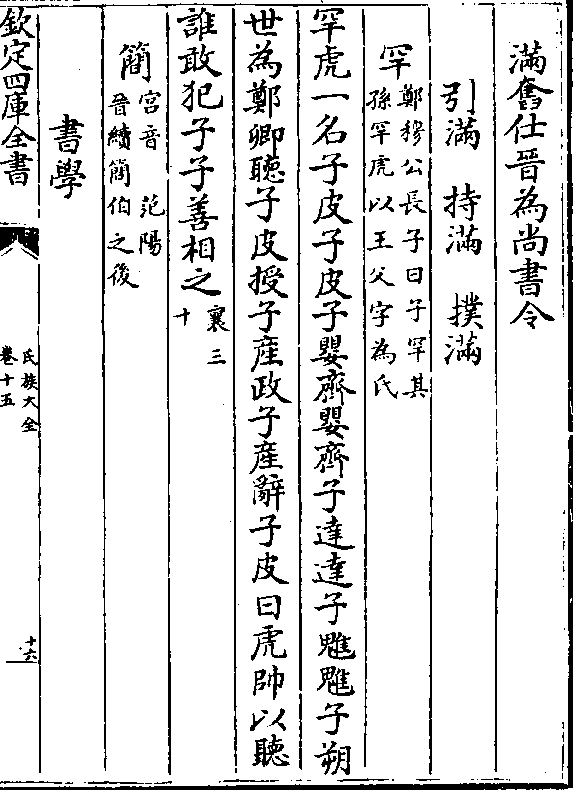 滿奮仕晉為尚書令
引滿 持滿 撲滿
罕 鄭穆公長子曰子罕其
孫罕虎以王父字為氏
罕虎一名子皮子皮子嬰齊嬰齊子達達子魋魋子朔
世為鄭卿聽子皮授子産政子産辭子皮曰虎帥以聽
誰敢犯子子善相之 襄三
十
簡 宫音 范陽
晉續簡伯之後
書學
欽定四庫全書
氏族大全
卷十五
十六